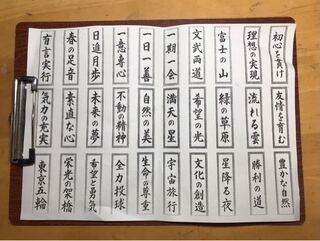 初心を貫け
理想の実現
富士の山
文武両道
一期一会
一日一善
一意専心
日進月歩
春の足音
有言実行
友情を育む
流れる雲
緑の草原
希望の光
満天の星
自然の美
不動の精神
未来の夢
素直な心
気力の充実
豊かな自然
勝利の道
星降る夜
文化の創造
宇宙旅行
生命の尊重
全力投球
希望と勇気
栄光の架橋
東京五輪